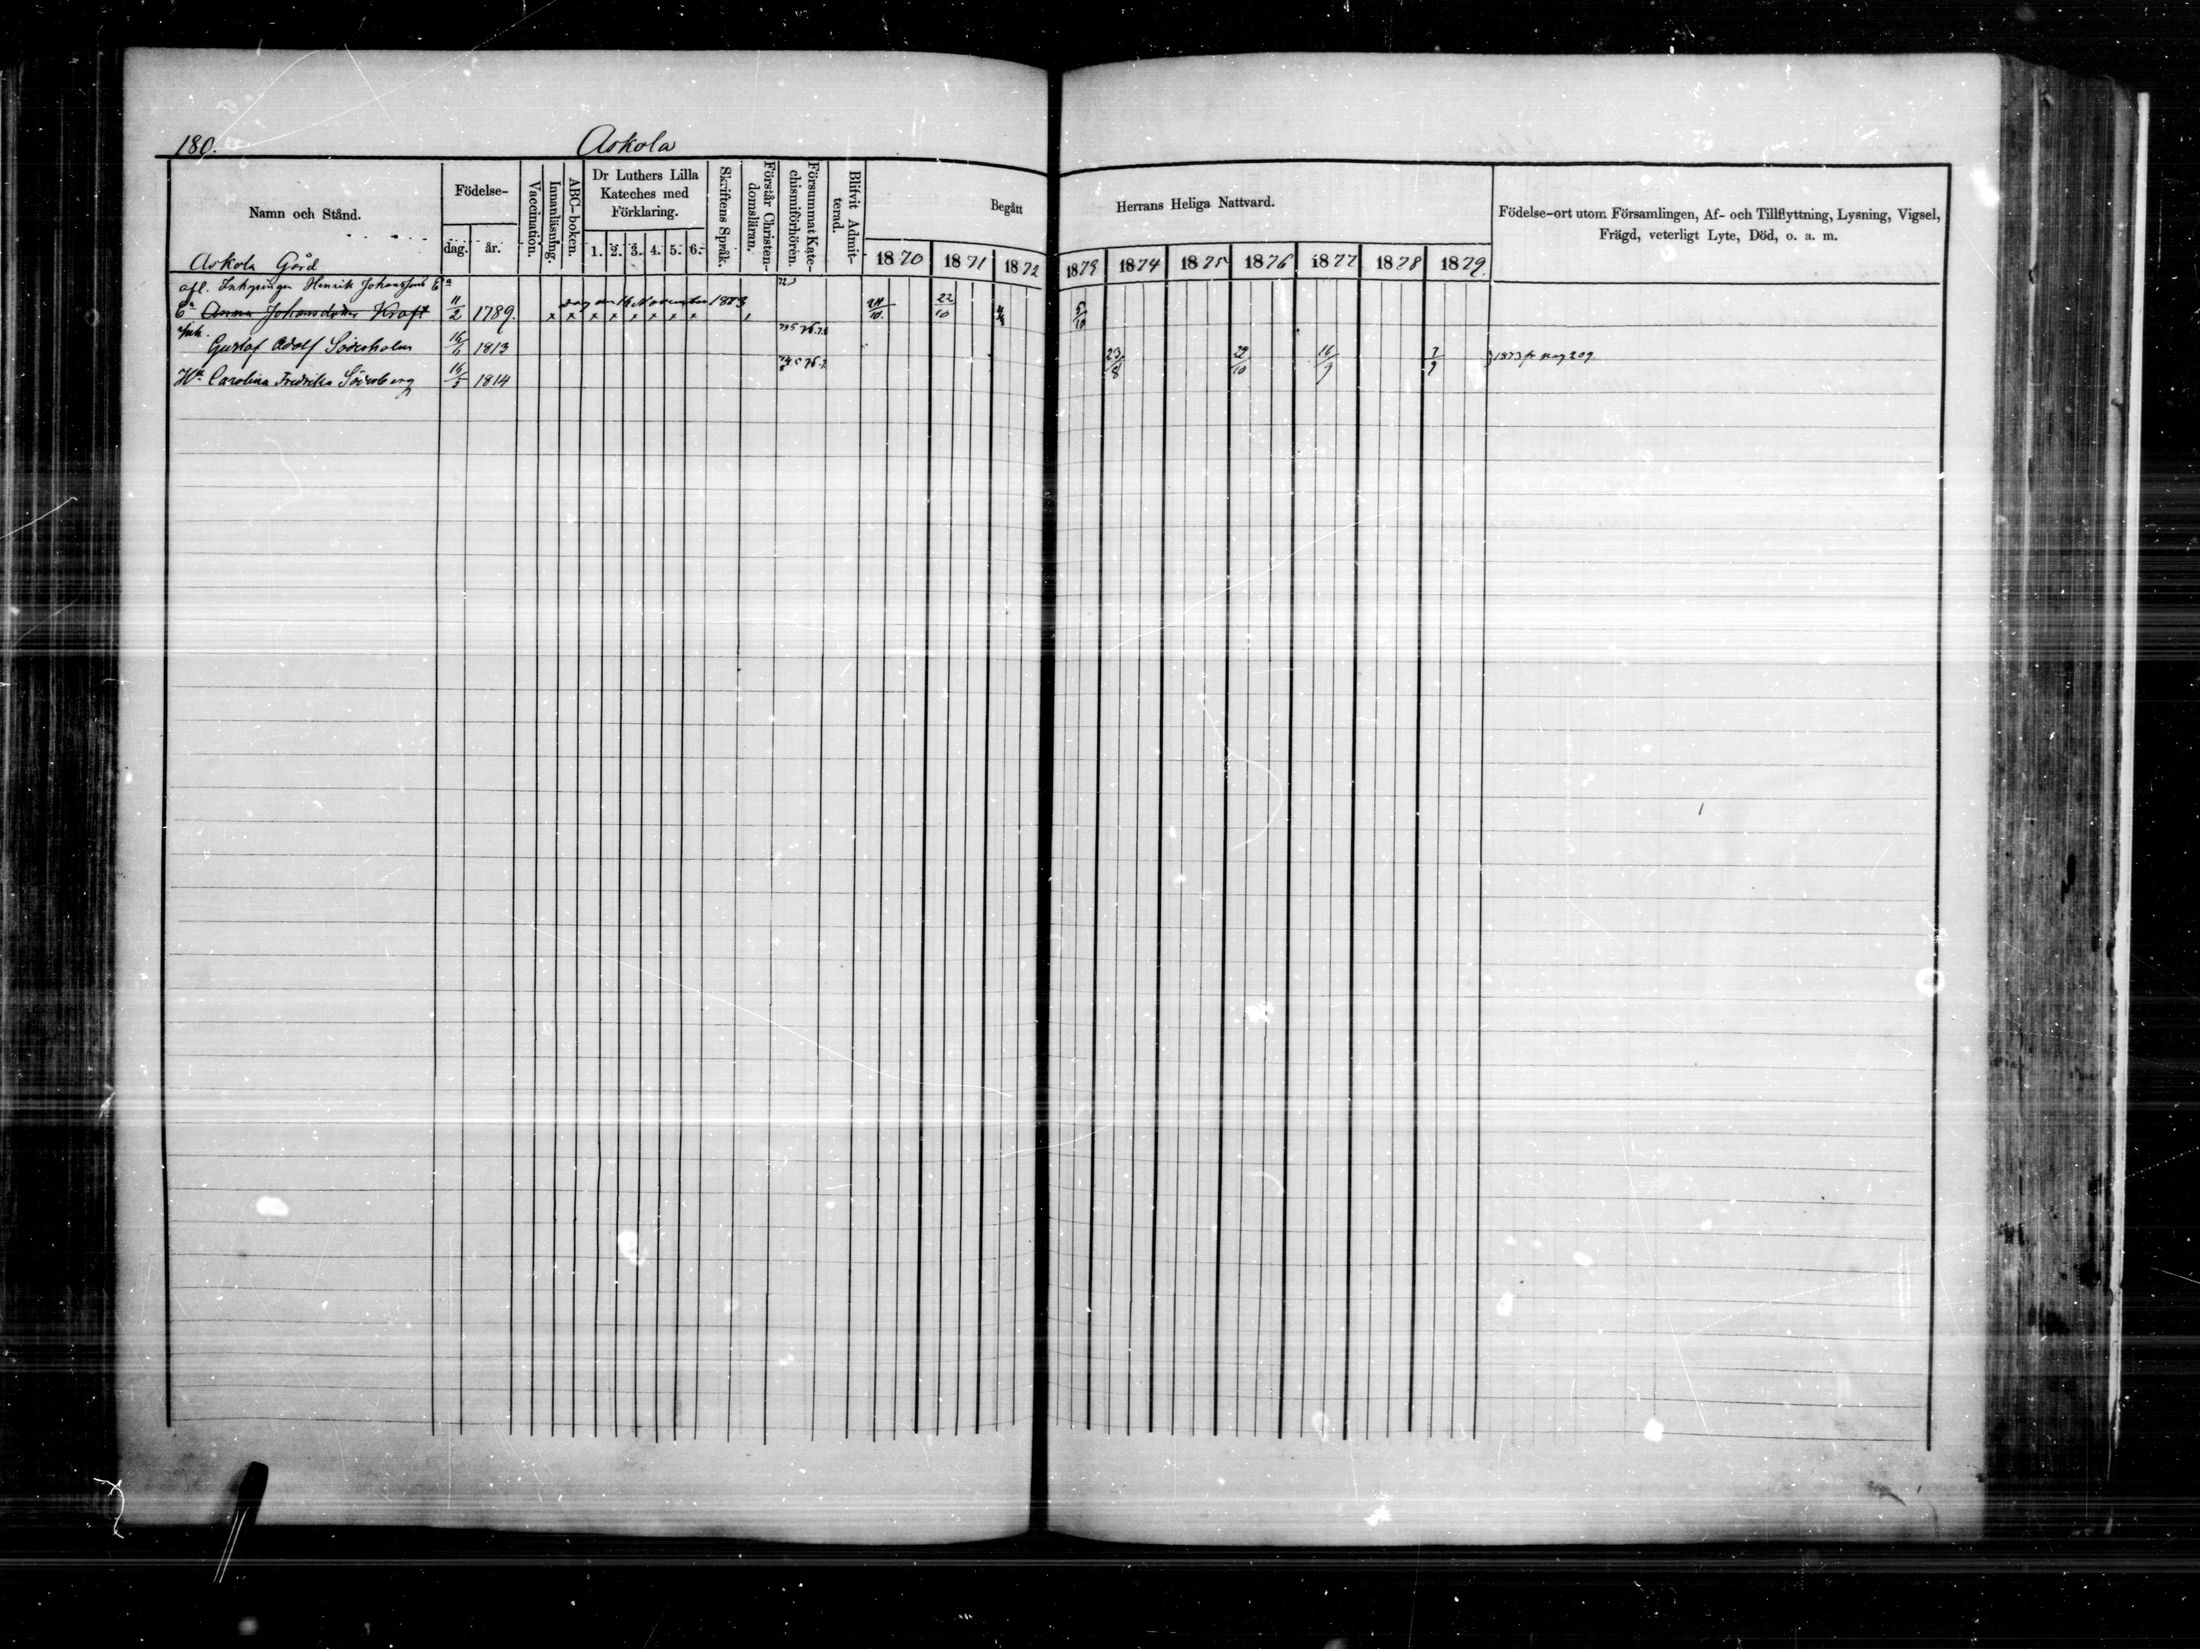 180. Askola
Namn och Stånd.
Födelse-
dag. år.
Vaccination.
Innanläsning.
ABC-boken.
Dr Luthers Lilla
Kateches med
Förklaring.
1. 2. 3. 4. 5. 6.
Skriftens Språk.
Förstår Christen-
domsläran.
Försummat Kate-
chismiförhören.
Blifvit Admit-
terad.
Begått Herrans Heliga Nattvard.
1870 1871 1872 1873 1874 1875 1876 1877 1878 1879.
Födelse-ort utom Församlingen, Af- och Tillflyttning, Lysning, Vigsel,
Frägd, veterligt Lyte, Död, o. a. m.
Askola Gård
afl. Henrik Johanssons Ea
Ea Anna Johansdotter Kraft 11/2 1789. x x x x x x x x 24/10. 22/10 5/10
Inh.
Gustaf Adolf Söderholm 16/6 1813 23/8 22/10 16/9 7/9 1873 fr pag 209.
Hu Carolina Fredrika Söderberg 16/5 1814